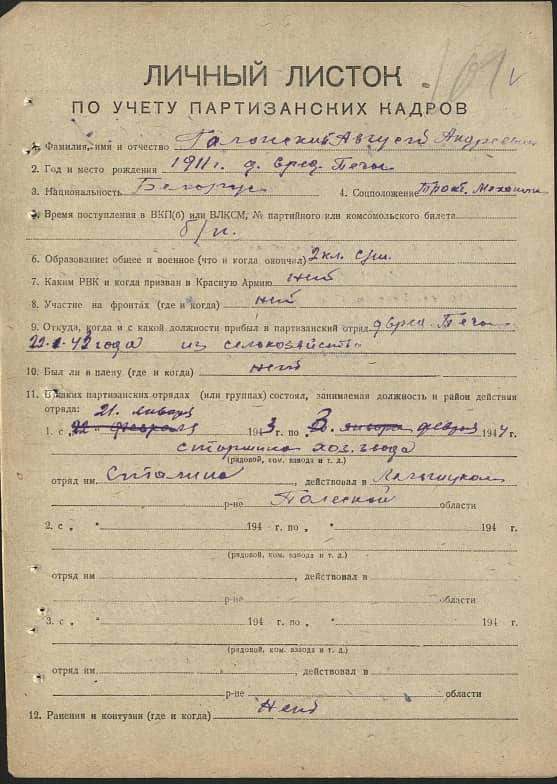 109 v
ЛИЧНЫЙ ЛИСТОК
ПО УЧЕТУ ПАРТИЗАНСКИХ КАДРОВ
1. Фамилия, имя и отчество Август Андреевич
2. Год и место рождения 1911 г. д. Печи
3. Национальность Белорус 4. Соцположение Механик
5. Время поступления в ВКП(б) или ВЛКСМ, № партийного или комсомольского билета
б/п.
6. Образование: общее и военное (что и когда окончил) 2 кл.
7. Каким РВК и когда призван в Красную Армию нет
8. Участие на фронтах (где и когда) нет
9. Откуда, когда и с какой должности прибыл в партизанский отряд Печи
43 года из
10. Был ли в плену (где и когда) нет
11. В каких партизанских отрядах (или группах) состоял, занимаемая должность и район действия
отряда: 21. января
1. с 22 " февраля 1943 г. по января февраля 1944 г.
старшина хоз. взвода
(рядовой, ком. взвода и т. д.)
отряд им. Сталина, действовал в
р-не Полеской области
2. с " " 194 г. по " " 194 г.
(рядовой, ком. взвода и т. д.)
отряд им , действовал в
р-не области
3. с " " 194 г. по " " 194 г.
(рядовой, ком. взвода и т. д.)
отряд им. , действовал в
р-не области
12. Ранения и контузии (где и когда) Нет